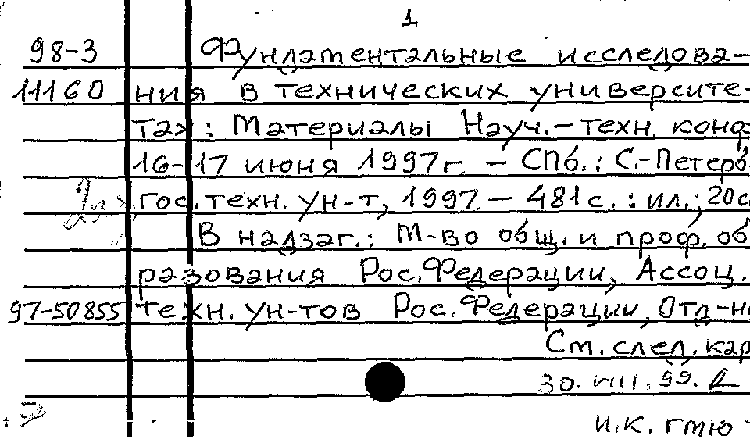 1
98-3 Фундаментальные исследова-
11160 ния в технических университе-
тах: Материалы Науч.-техн. конф
16-17 июня 1997г. - СПб.: С.-Петерб
гос. техн. ун-т, 1997. - 481с. : ил.; 20с
В надзаг.: М-во общ. и проф. об
разования Рос. Федерации, Ассоц.
97-50855 техн. ун-тов Рос. Федерации, Отд-н
См. след. кар
30. VIII. 99.
И.К. ГПЮ